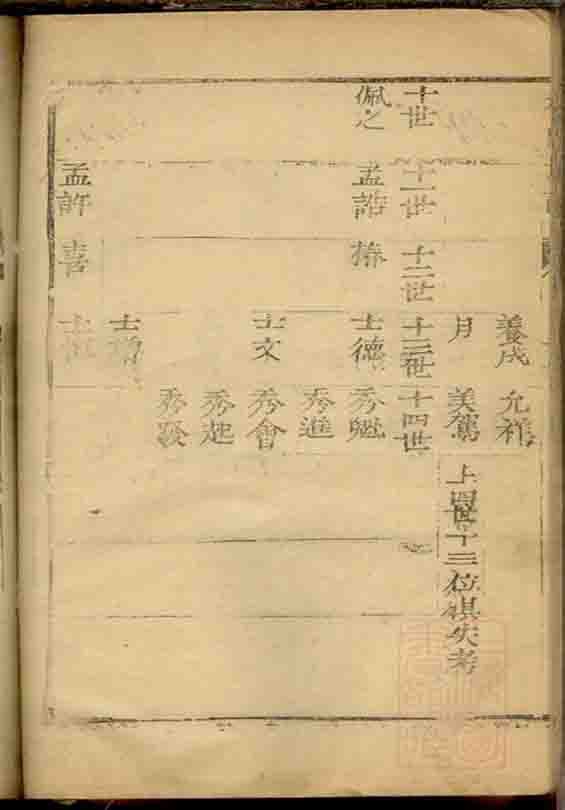 養成 允祥
月 美鴛 上四世十三位俱失考
十世 十一世 十二世 十三世 十四世
佩之 孟誥 士德 秀魁
秀進
士文 秀會
秀起
秀發
士
孟許 喜 士